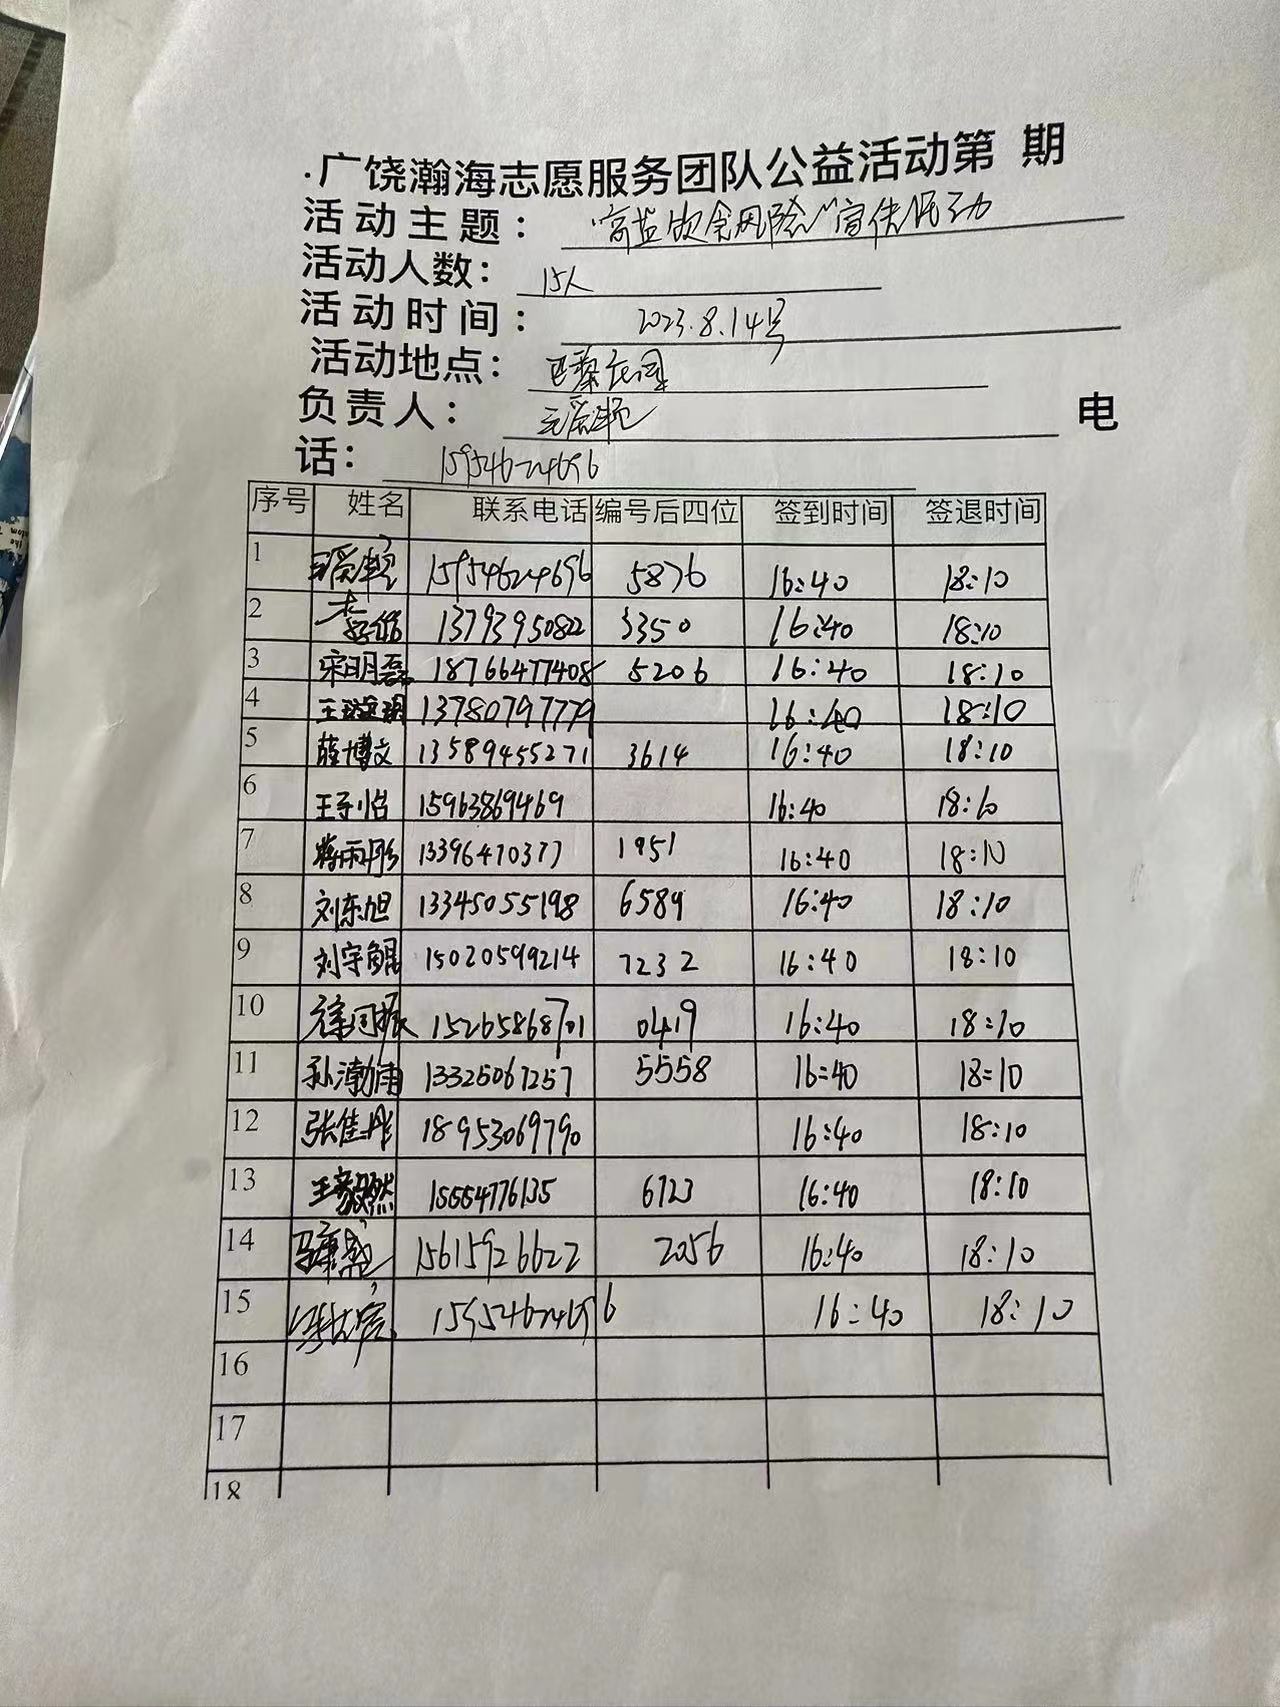 .广饶瀚海志愿服务团队公益活动第 期
活动主题： "高盐饮食风险"宣传活动
活动人数： 15人
活动时间： 2023.8.14号
活动地点： 巴黎花园
负责人： 电
话： 15954624696
序号 姓名 联系电话 编号后四位 签到时间 签退时间
1 15954624696 5876 16:40 18:10
2 13793950822 3350 16:40 18:10
3 宋明磊 18766477408 5206 16:40 18:10
4 13780797779 16:40 18:10
5 薛博文 13589455271 3614 16:40 18:10
6 王子怡 15963869469 16:40 18:10
7 蒋雨彤 13396470377 1951 16:40 18:10
8 刘东旭 13345055198 6589 16:40 18:10
9 刘宇鲲 15020599214 7232 16:40 18:10
10 15265868701 0419 16:40 18:10
11 孙渤甯 13325067257 5558 16:40 18:10
12 张佳彤 18953069790 16:40 18:10
13 王毅然 15554776135 6723 16:40 18:10
14 马康盛 15615926622 2056 16:40 18:10
15 15954624696 16:40 18:10
16
17
18